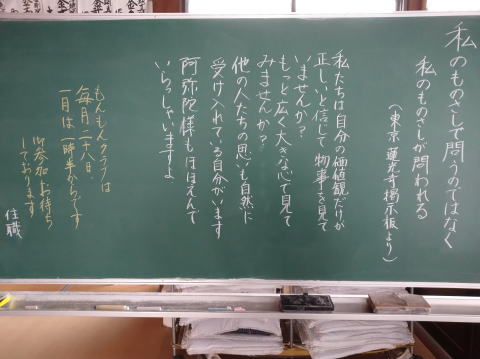 私のものさしで問うのではなく
私のものさしが問われる
(東京 蓮光寺掲示板より)
私たちは自分の価値観だけが
正しいと信じて物事を見て
いませんか?
もっと広く大きな心で見て
みませんか?
他の人たちの思いも自然に
受け入れている自分がいます
阿弥陀様もほほえんで
いらっしゃいますよ
もんもんクラブは
毎月二十八日、
一月は一時半からです
御参加お待ち
しております
住職